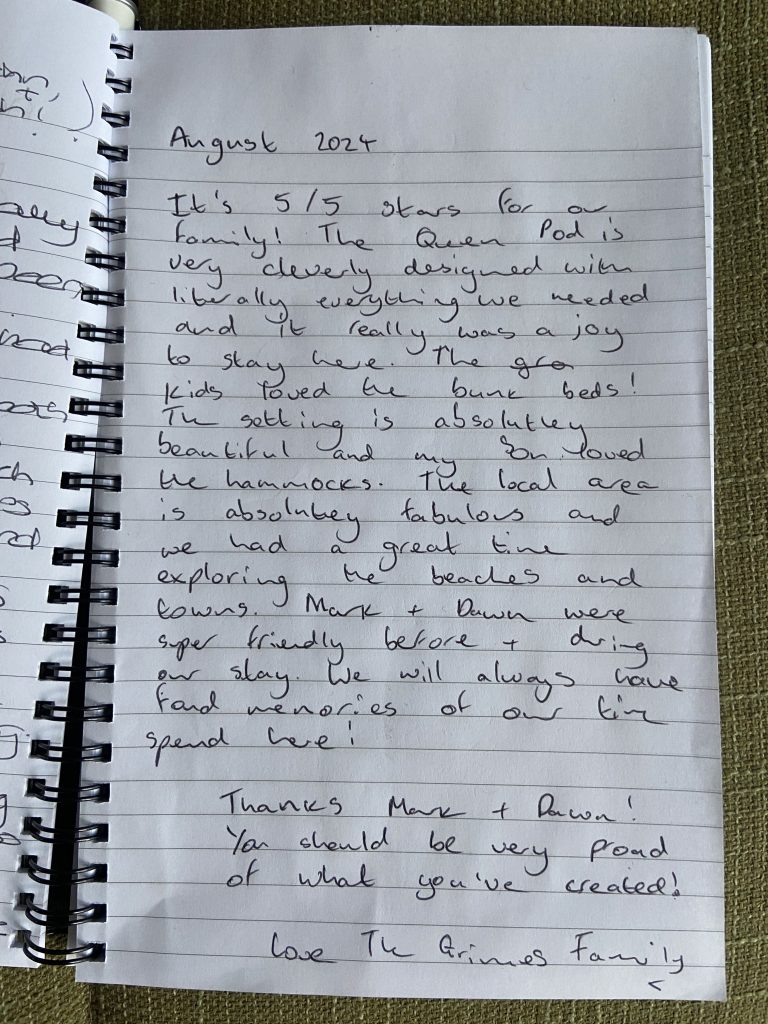 August 2024
It's 5/5 stars for our
family! The Queen Pod is
very cleverly designed with
literally everything we needed
and it really was a joy
to stay here. The gra
kids loved the bunk beds!
The setting is absolutley
beautiful and my son loved
the hammocks. The local area
is absolutey fabulous and
we had a great time
exploring the beaches and
towns. Mark + Dawn were
super friendly before + during
our stay. We will always have
fond memories of our time
spend here!
Thanks Mark + Dawn!
You should be very proud
of what you've created!
Love The Grimes Family